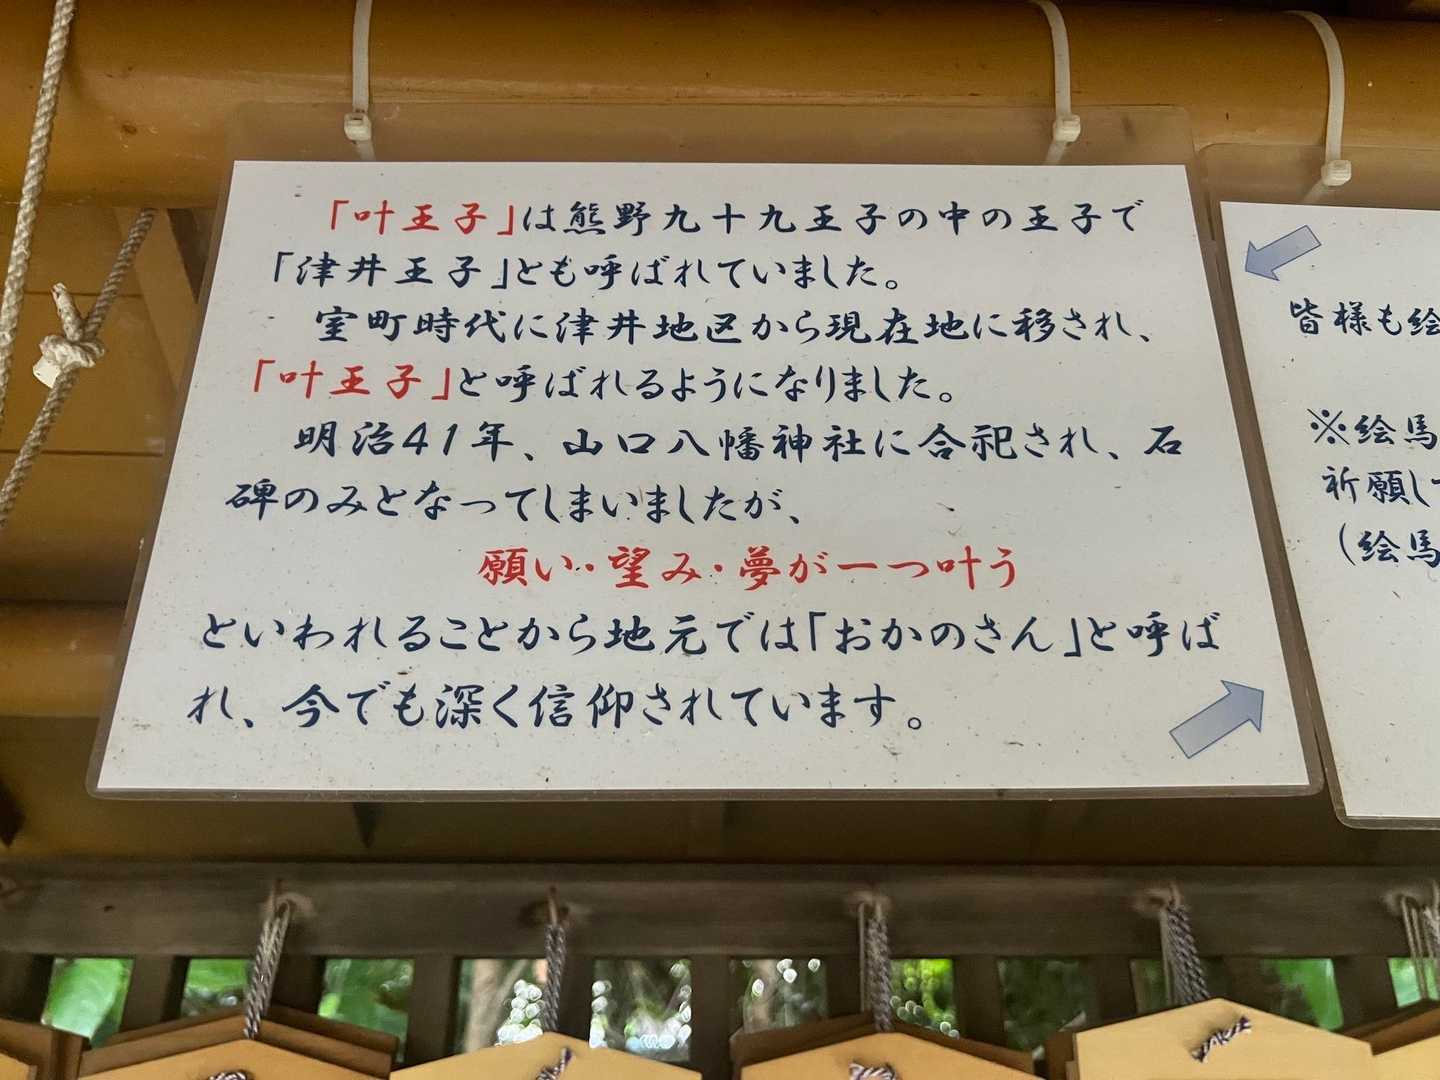 「叶王子」は熊野九十九王子の中の王子で
「津井王子」とも呼ばれていました。
室町時代に津井地区から現在地に移され、
「叶王子」と呼ばれるようになりました。
明治41年、山口八幡神社に合祀され、石
碑のみとなってしまいましたが、
願い・望み・夢が一つ叶う
といわれることから地元では「おかのさん」と呼ば
れ、今でも深く信仰されています。
皆様も絵
※絵馬
祈願して
(絵馬